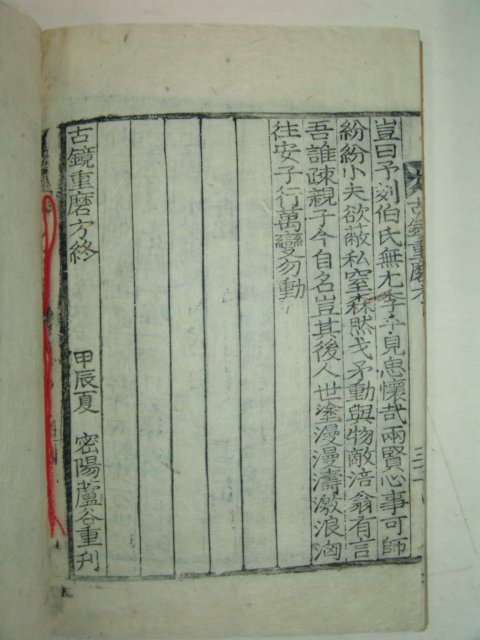 古鏡重磨方
豈曰予刻伯氏無尤季子見忠懷哉兩賢心事可師
紛紛小夫欲蔽私窒森然戈矛動與物敵涪翁有言
吾誰疎親子今自名豈其後人世塗漫漫濤激浪洶
往安子行萬變勿動
古鏡重磨方終
甲辰夏 密陽蘆谷重刊